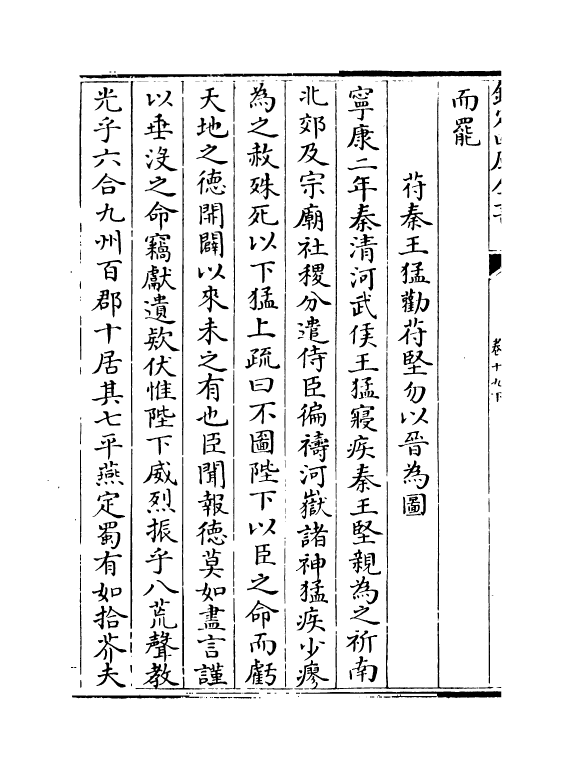 而罷
苻秦王猛勸苻堅勿以晉為圖
寧康二年秦清河武侯王猛寢疾秦王堅親為之祈南
北郊及宗廟社稷分遣侍臣徧禱河嶽諸神猛疾少瘳
為之赦殊死以下猛上疏曰不圖陛下以臣之命而虧
天地之德開闢以來未之有也臣聞報德莫如盡言謹
以垂沒之命竊獻遺欵伏惟陛下威烈振乎八荒聲教
光乎六合九州百郡十居其七平燕定蜀有如拾芥夫
卷十九下